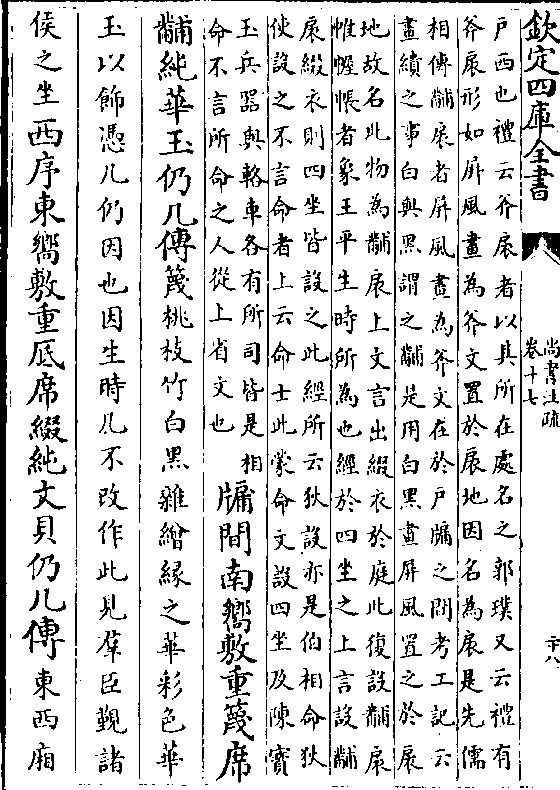 欽定四庫全書
尚書注疏
卷十七
十八
戶西也禮云斧扆者以其所在處名之郭璞又云禮有
斧扆形如屏風畫為斧文置於扆地因名為扆是先儒
相傳黼扆者屏風畫為斧文在於戶牖之間考工記云
畫繢之事白與黑謂之黼是用白黑畫屏風置之於扆
地故名此物為黼扆上文言出綴衣於庭此復設黼扆
帷幄帳者象王平生時所為也經於四坐之上言設黼
扆綴衣則四坐皆設之此經所云狄設亦是伯相命狄
使設之不言命者上云命士此蒙命文設四坐及陳寶
玉兵器與輅車各有所司皆是相
命不言所命之人從上省文也
牖間南嚮敷重篾席
黼純華玉仍几傳篾桃枝竹白黑雜繒緣之華彩色華
玉以飾憑几仍因也因生時几不改作此見羣臣覲諸
侯之坐西序東嚮敷重底席綴純文貝仍几傳東西廂